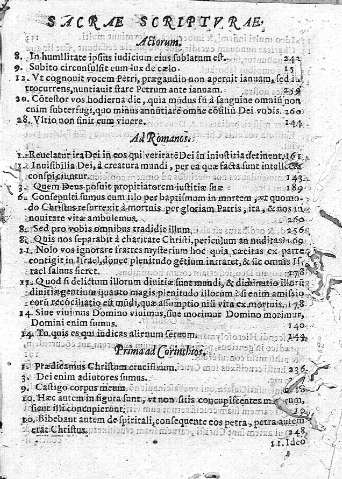 SACRAE SCRIPTVRAE,
Actorum.
8. In humilitate ipsius iudicium eius sublatum est. 242
9. Subito circunfulsit eum lux de cælo. 15
12. Vt cognouit vocem Petri, præ gaudio non aperuit ianuam, sed in
trocurrens, nuntiauit stare Petrum ante ianuam. 259
20. Cōtestor vos hodierna die, quia mūdus sū á sanguine omniū non
enim subterfugi, quo minus annūtiarē omnē cōsiliū Dei vobis. 260
28. Vltio non sinit eum viuere. 144
Ad Romanos.
1. Reuelatur ira Dei in eos qui veritatē Dei in iniustitia detinent, 161
1. Inuisibilia Dei, á creatura mundi, per ea quæ facta sunt intellecta
conspiciuntur. 143
3. Quem Deus posuit propitiatorem iustitiæ suæ 189
6. Consepulti sumus cum illo per baptismum in mortem, vt quomo-
do Christus resurrexit á mortuis per gloriam Patris, ita, & nos in
nouitate vitæ ambulemus. 260
8. Sed pro vobis omnibus tradidit illum. 256
8. Quis nos separabit á charitate Christi, periculum an nuditas? 169
11. Nolo vos ignorare fratres mysterium hoc quia cæcitas ex parte
contigit in Israel, donec plenitudo gētium intraret, & sic omnis Is-
rael saluus fieret. 178
11. Quod si delictum illorum diuitiæ sunt mundi, & diminutio illorū
diuitiæ gentium quanto magis plenitudo illorum? si enim amissio
eorū reconciliatio est mūdi, quæ assumptio nisi vita ex mortuis. 178
14. Siue viuimus Domino viuimus, siue morimur Domino morimur,
Domini enim sumus. 140
14. Tu quis es qui iudicas alienum seruum. 244
Prima ad Corinthios.
1. Prædicamus Christum crucifixum. 236
3. Dei enim adiutores sumus.
9. Castigo corpus meum.
10. Hæc autem in figura sunt, vt non sitis concupiscentes malorum,
sicut illi concupierunt.
10. Bibebant autem de spiritali, consequente eos petra, petra autem
erat Christus. 148
11. Ideo